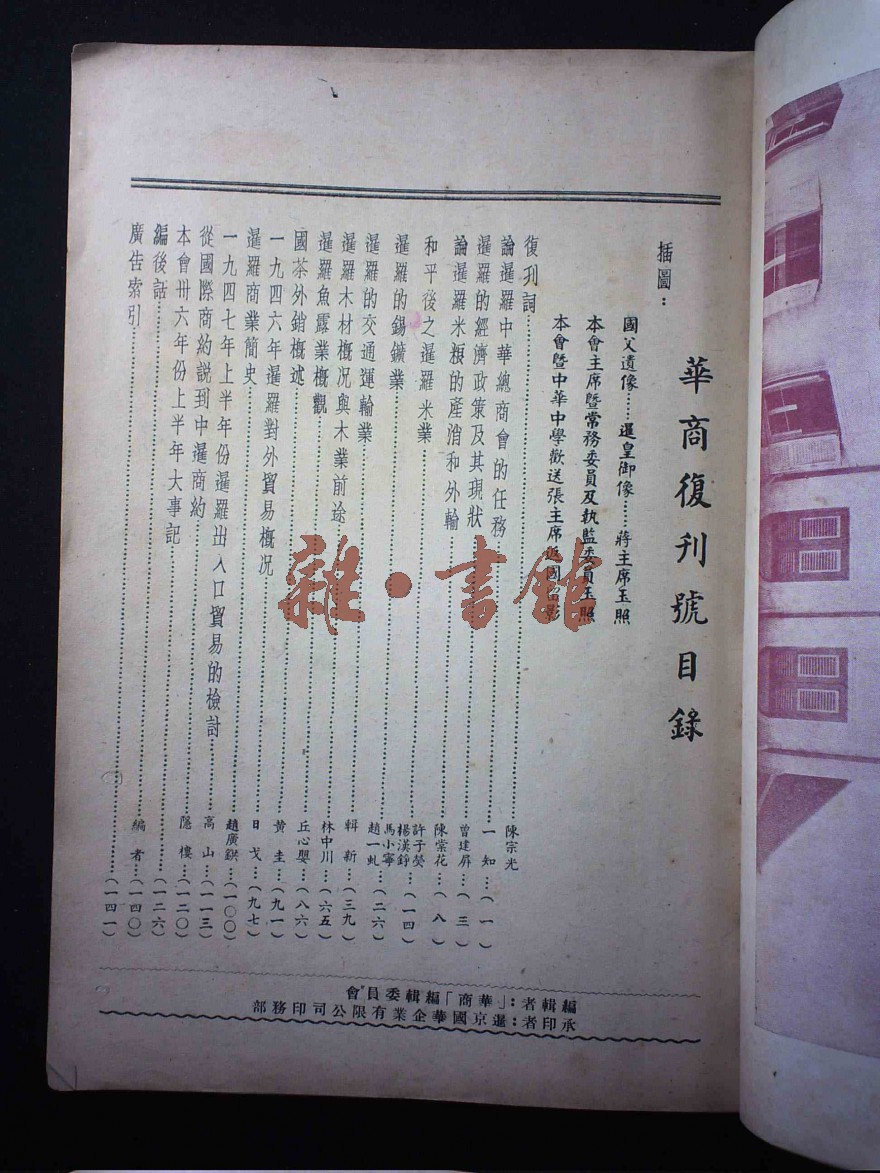 華商復刊號目錄
插圖：
國父遺像……暹皇御像……蔣主席玉照
本會主席暨常務委員及執監委員玉照
本會暨中華中學歡送張主席返國留影
復刊詞……陳宗光
論暹羅中華總商會的任務……一知…(一)
暹羅的經濟政策及其現狀……曾建屏…(三)
論暹羅米糧的產消和外輸……陳棠花…(八)
和平後之暹羅米業……許子熒 楊漢錚 馬小寧…(一四)
暹羅的錫鑛業……趙一虬…(二六)
暹羅的交通運輸業……輯新…(三九)
暹羅木材概況與木業前途……林中川…(六五)
暹羅魚露業概觀……丘心嬰…(八六)
國茶外銷概述……黃圭…(九一)
一九四六年暹羅對外貿易概況……日戈…(九七)
暹羅商業簡史……趙廣鉷…(一〇〇)
一九四七年上半年份暹羅出入口貿易的檢討……高山…(一一三)
從國際商約說到中暹商約……隱樓…(一二〇)
本會卅六年份上半年大事記……(一二六)
編後話……編者…(一四〇)
廣告索引……(一四一)
編輯者：「華商」編輯委員會
承印者：暹京國華企業有限公司印務部
雜·書館